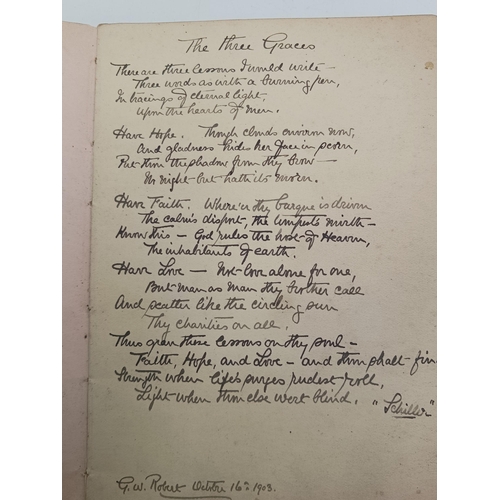 The Three Graces
There are three lessons I would write –
Three words as with a burning pen,
In tracings of eternal light,
Upon the hearts of men.
Have Hope. Though clouds environ now,
And gladness hides her face in scorn,
Put thou the shadow from thy brow –
No night but hath its morn.
Have Faith. Where'er thy barque is driven
The calm's disport, the tempest's mirth –
Know this – God rules the host of Heaven,
The inhabitants of earth.
Have Love – Not love alone for one,
But man as man thy brother call
And scatter like the circling sun
Thy charities on all.
Thus grav these lessons on thy soul –
Faith, Hope, and Love – and thou shalt fin
Strength when life's surges rudest roll,
Light when thou else wert blind. "Schiller"
G. W. Robert October 16th 1903.